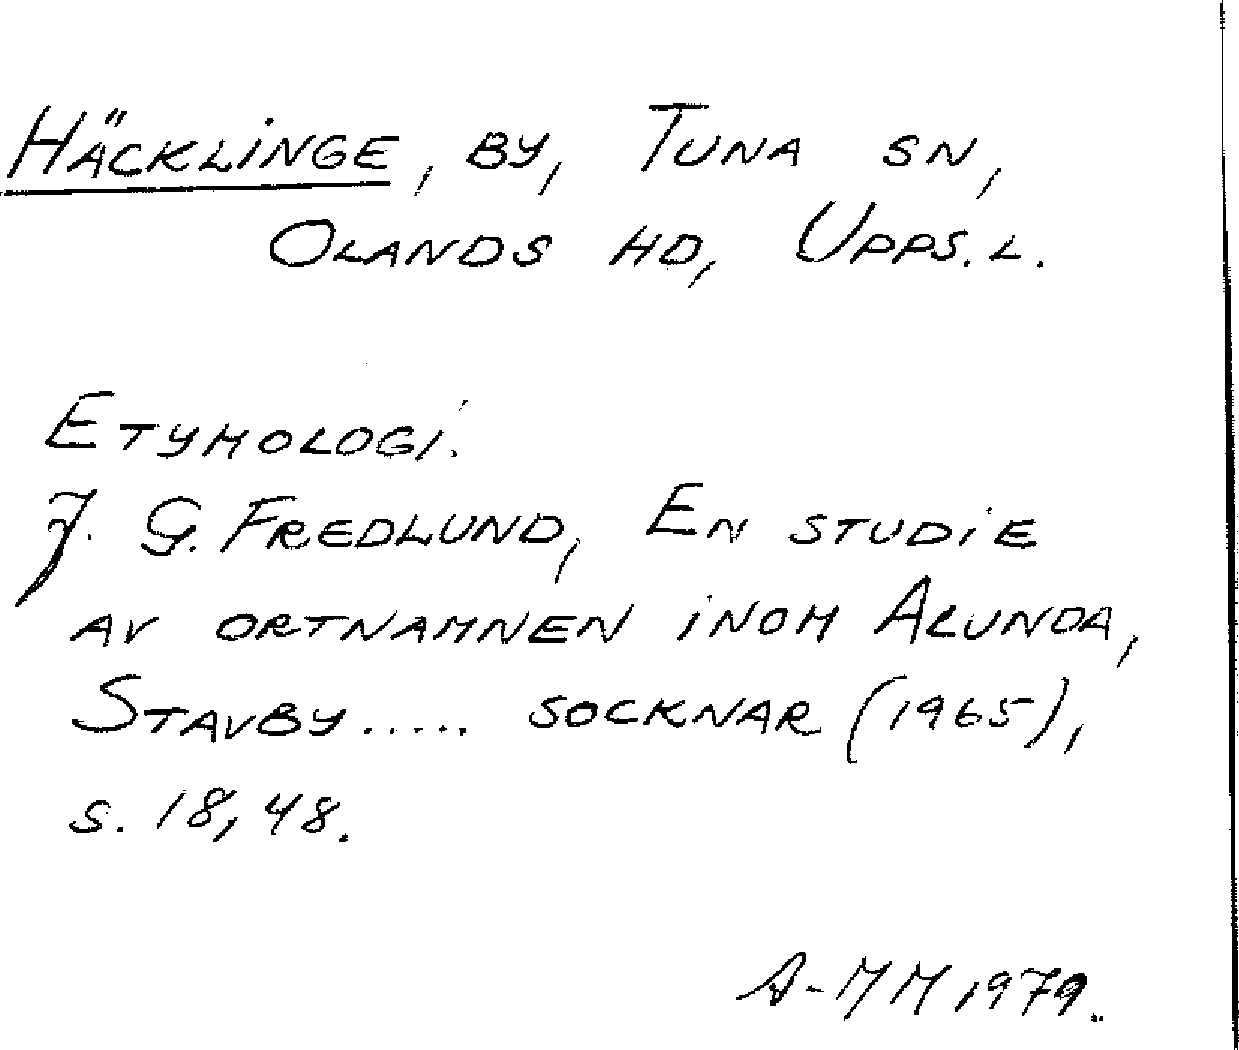 HÄCKLINGE, BY, TUNA SN,
OLANDS HD, UPPS.L.
ETYMOLOGI.
J. G. FREDLUND, EN STUDIE
AV ORTNAMNEN INOM ALUNDA,
STAVBY..... SOCKNAR (1965),
S. 18, 48.
A-MM 1979.